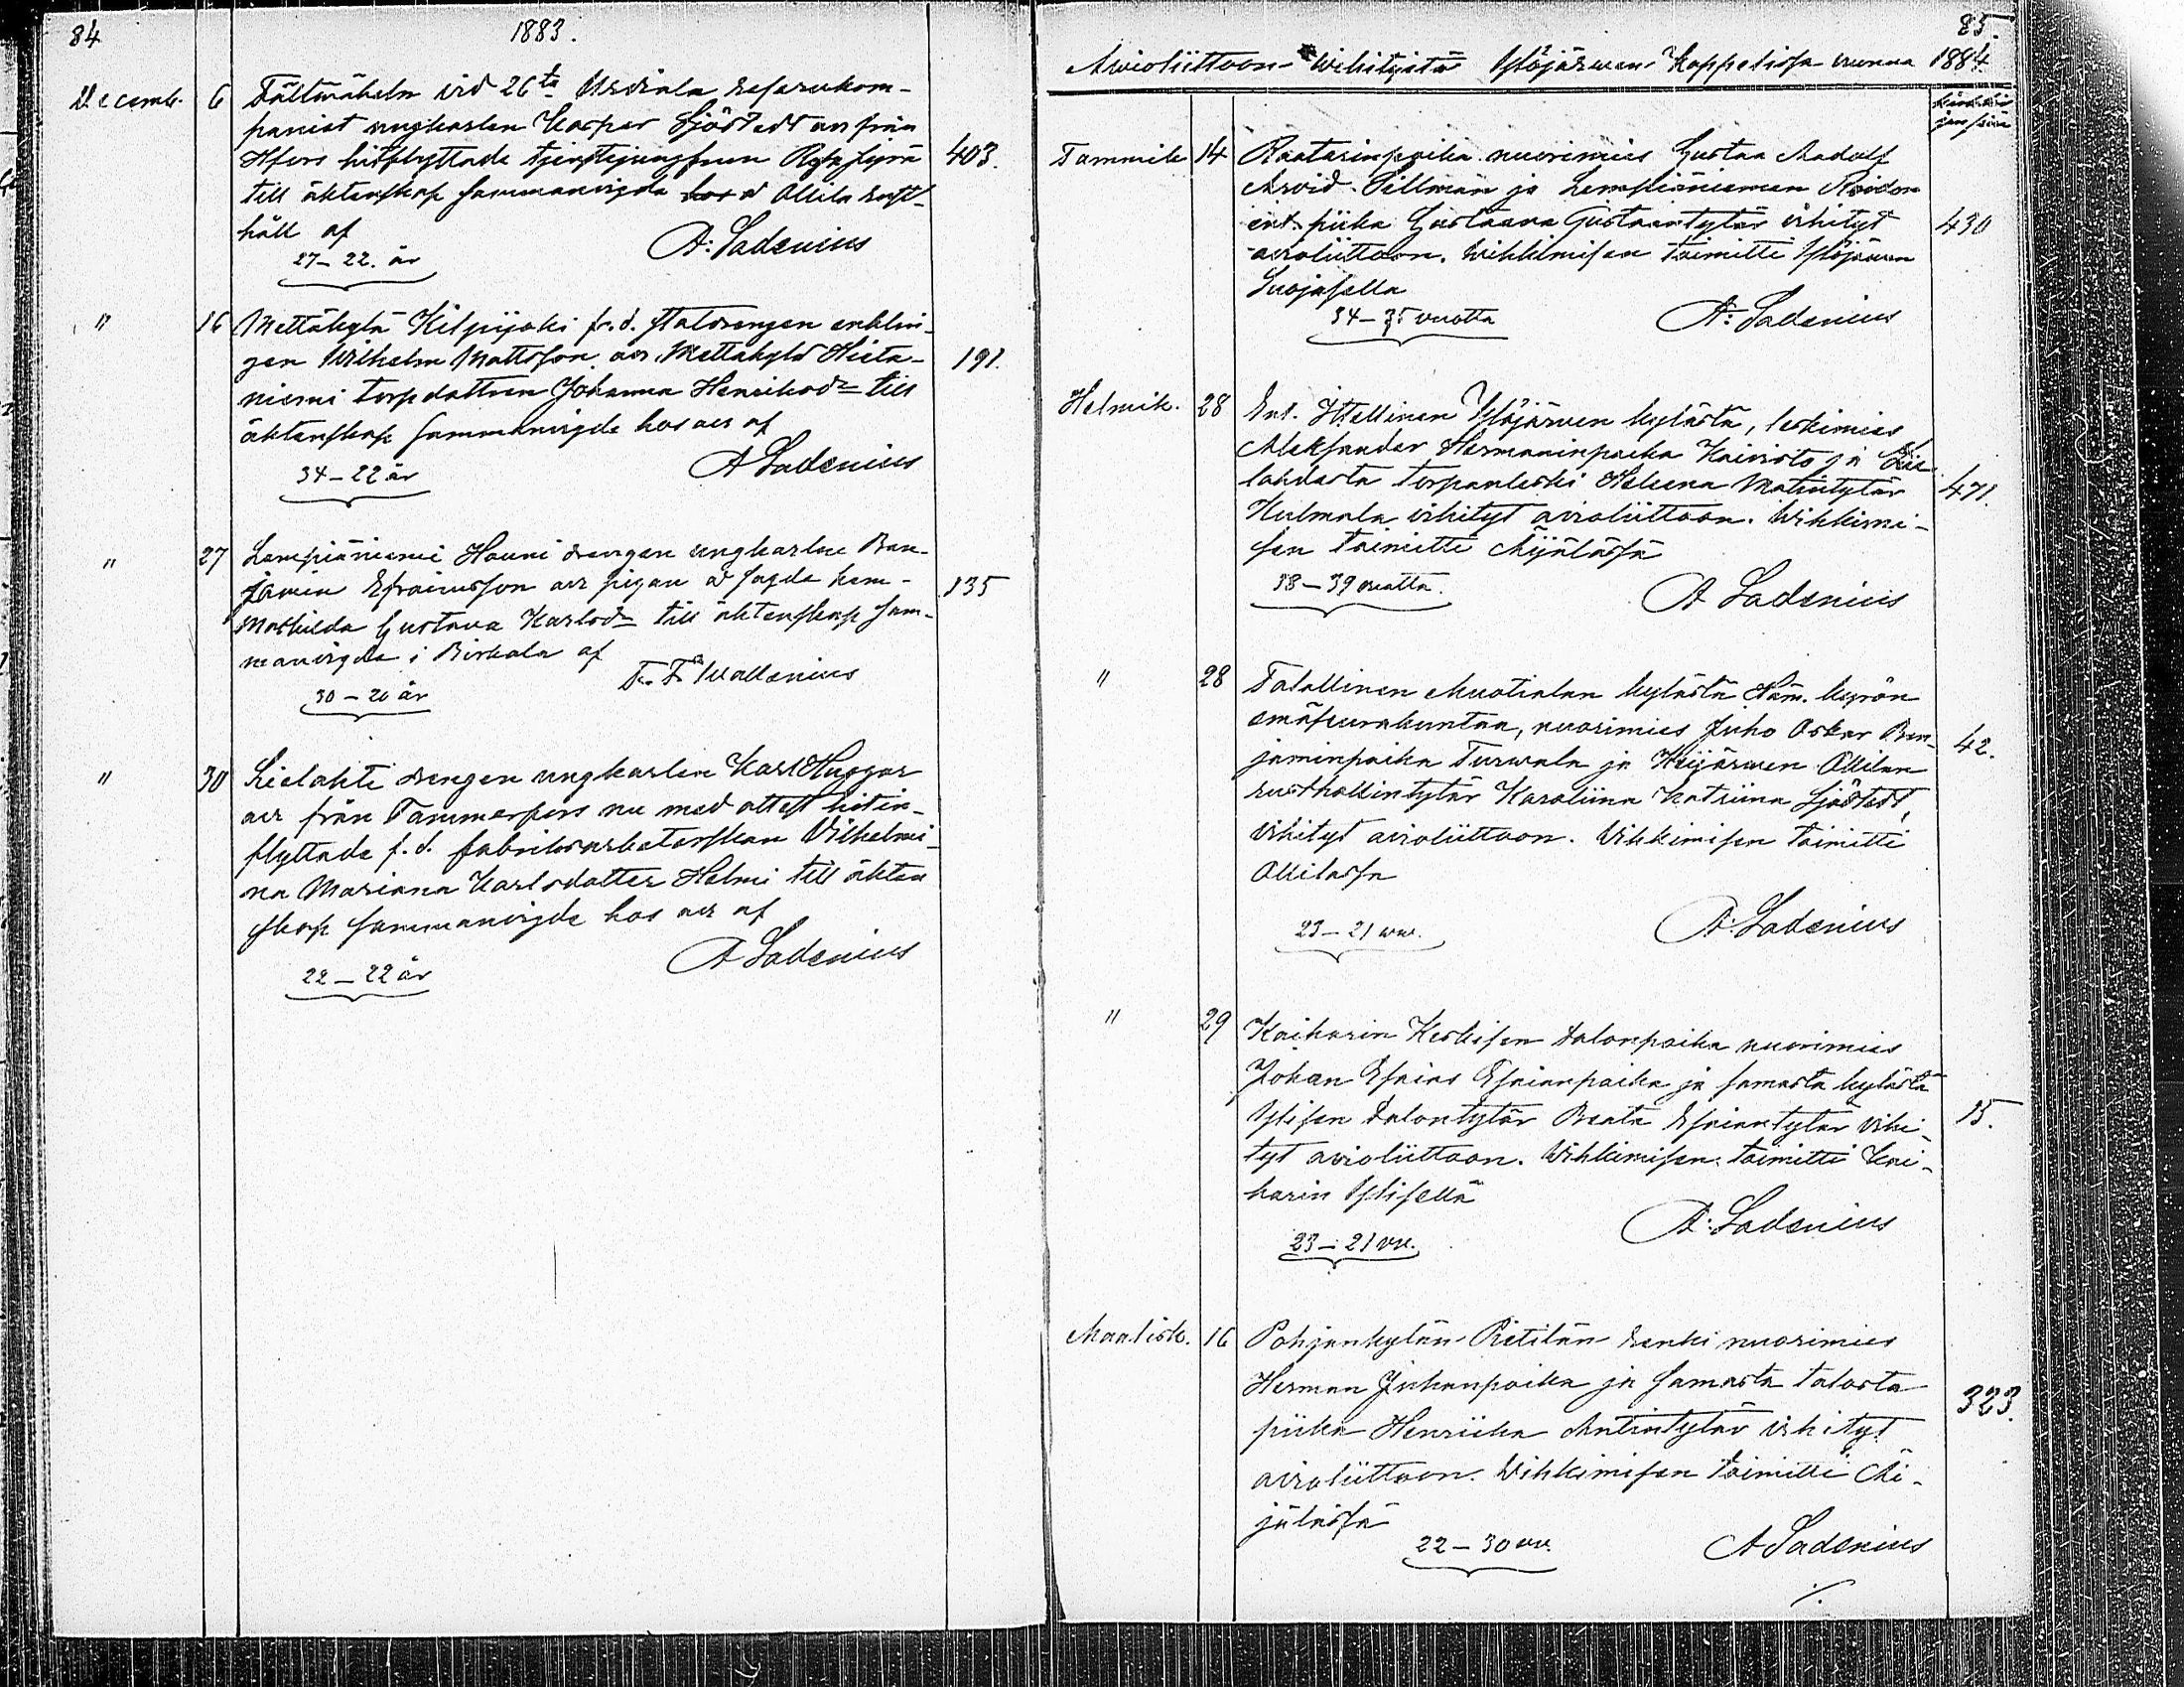 84
1883.
Decemb. 6 Fältväbeln vid 26te Urdiala reservkom-
paniet ungkarlen Kasper Sjöstedt och från
Hfors hitflyttade tjenstejungfrun
till äktenskap sammanvigda å Ollila rust-
håll af
403.
27–22. år
A: Ladenius
" 16 Mettäkylä Kilpijoki fr. d. enklin-
gen Wilhelm Mattsson och Mettäkylä Hieta-
niemi torpdottren Johanna Henriksdr till
äktenskap sammanvigde hos oss af
191.
34–22 år
A Ladenius
" 27 Lempiäniemi Hauni drengen ungkarlen Ben-
jamin Efraimsson och pigan å sagde hem-
Mathilda Gustava Karlsdr till äktenskap sam-
manvigde i Birkala af
135
30–20 år
F. F. Wallenius
" 30 Lielahti drengen ungkarlen Karl
och från Tammerfors nu med attest hitin-
flyttade f. d. fabriksarbeterskan Vilhelmi-
na Mariana Karlsdotter Helmi till äkten
skap sammanvigde hos oss af
22–22 år
A Ladenius
85.
Awioliittoon Wihityitä Ylöjärwen Kappelissa vuonna 1884.
Tammik 14 Raatarinpoika nuorimies Gustaa Aadolf
Arvid Tillman ja Lempiäniemen
ent. piika Gustaava Gustaantytär vihityt
avioliittoon. Wihkimisen toimitti Ylöjärven
430
34–35 vuotta
A: Ladenius
Helmik. 28 Ent. Itsellinen Ylöjärven kylästä, leskimies
Aleksander Hermaninpoika Koivisto ja Lie-
lahdesta torpanleski Heleena Matintytär
Kulmala vihityt avioliittoon. Wihkimi-
sen toimitti Äijälässä
471.
38–39 vuotta.
A Ladenius
" 28 Talollinen kylästä Häm. kyrön
emäseurakuntaa, nuorimies Juho Oskar Ben-
jaminpoika Turwala ja Keijärwen Ollilan
rusthollintytär Karoliina Katriina Sjöstedt,
vihityt avioliittoon. Wihkimisen toimitti
Ollilassa
42.
23–21 vuo.
A: Ladenius
" 29 Kaiharin Keskisen talonpoika nuorimies
Johan Esaias Esaianpoika ja samasta kylästä
Ylisen talontytär Beata Esaiantytär vihi-
tyt avioliittoon. Wihkimisen toimitti Kai-
harin Ylisellä
15.
23–21 vu.
A: Ladenius
Maalisk. 16 Pohjankylän Pietilän renki nuorimies
Herman Juhanpoika ja samasta talosta
piika Henriika Antintytär vihityt
avioliittoon. Wihkimisen toimitti Äi-
jälässä
323.
22–30 vu.
A Ladenius